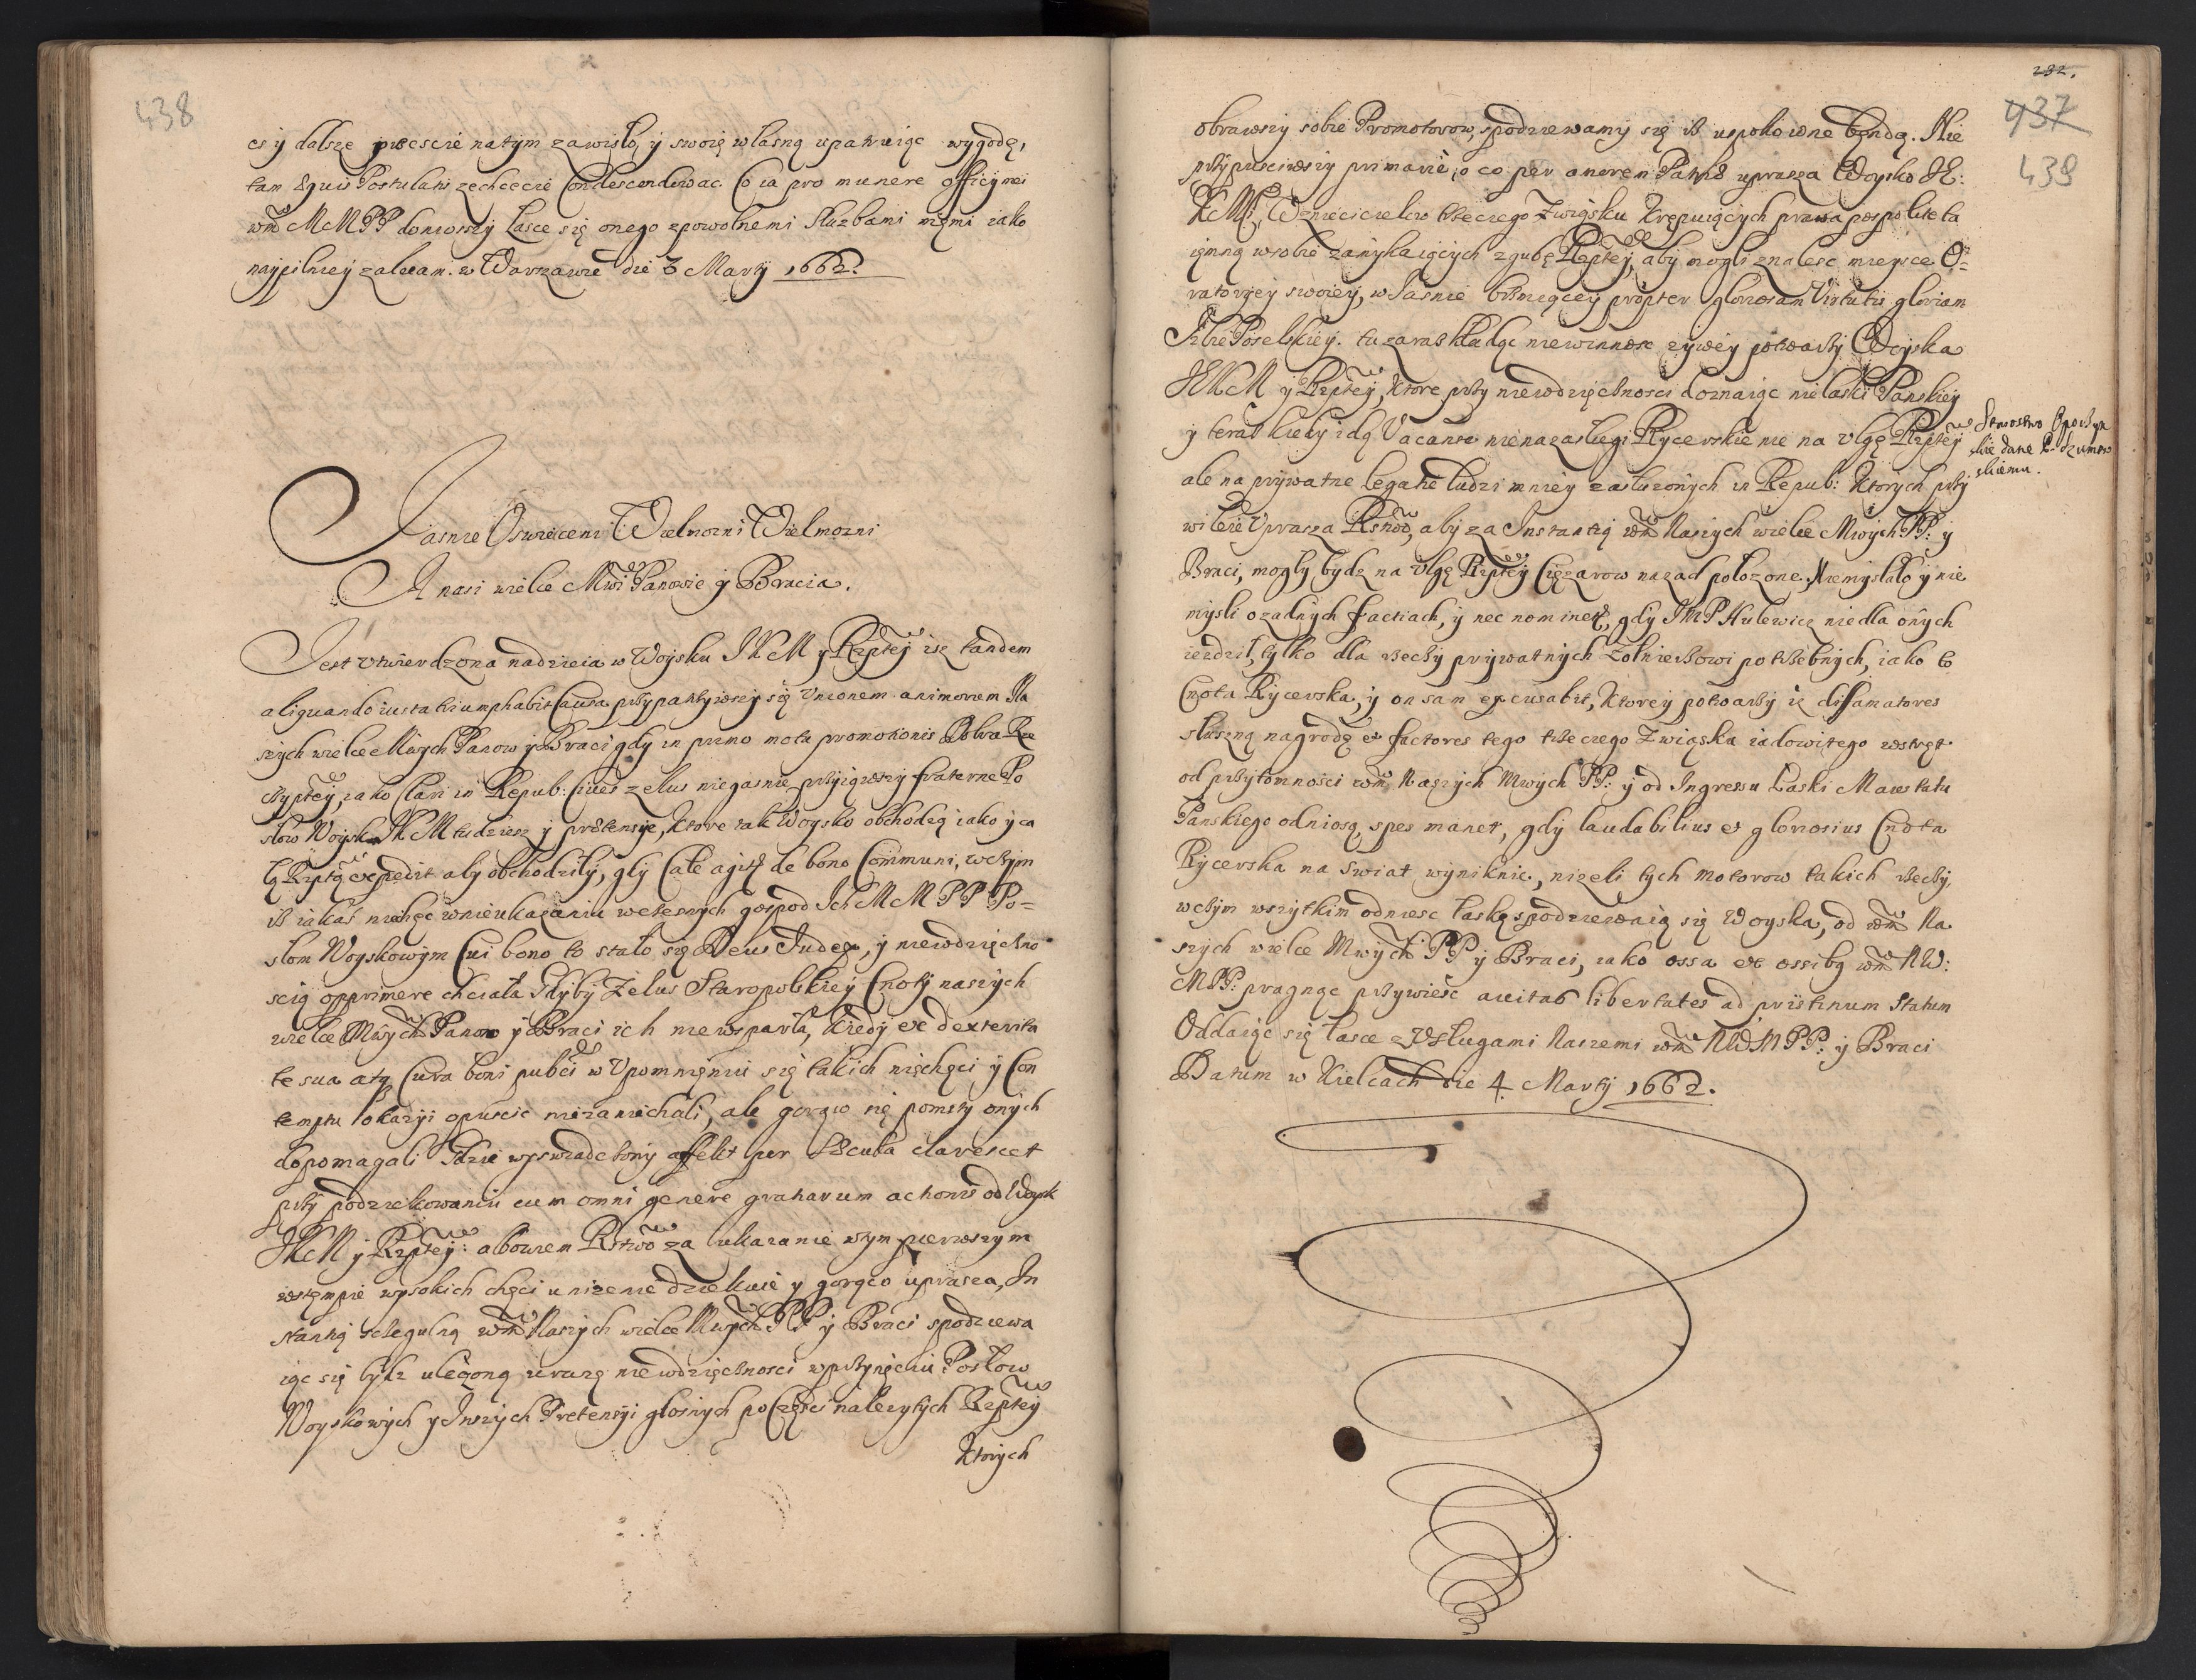 438
es y dalsze szczescie na tym zawisło, y swoię własną upatruiąc wygodę,
tam æquis Postulatis zechcecie Condescendowac. Co ia pro munere officij mei
wm̃ M M PP donioszy Łasce się onego z powolnemi Służbami męmi iako
naypilniey zalecam. w Warszawie die 3 Martij 1662.
Jasnie Oswieceni Wielmozni Wielmozni
A nasi wielce Mwi Panowie y Bracia.
Jest utwierdzona nadzieia w Woysku JKM y Rzptey isz tandem
aliquando iusta triumphabit Causa przypatrzywszy się Unionem animorum Na
szych wielce Mwych Panow y Braci gdy in primo motu promotionis Dobra Rze
czyptey, iako Clari in Repub: Cives zelus niegasnie przyiąwszy fraterne Po
słow Woyska JKM tudziesz y prætensye, ktore tak Woysko obchodzą iako y ca
łą Rzptą expedit aby obchodziły, gdy Cale agitur de bono Communi, w czym
isz iakaś niechęc w nieukazaniu wczesnych gospod Ich M M P P Po-
słom Woyskowym Cui bono to stało się Deus Judex, y niewdzięczno
scią opprimere chciała Gdyby Zelus Staropolskiey Cnoty naszych
wielce Mwych Panow y Braci ich nie wsparła, kiedy ex dexterita
te sua atq Cura boni publi w Upomnieniu się takich niechęci y Con
temptu okazyi opuscic nie zaniechali, ale gorąco się pomsty onych
dopomagali Gdzie wyswiadczony affekt per sæcula clarescet
przy podziekowaniu cum omni genere gratiarum actionis od Woysk
JKM y Rzptey: albowiem Rstwo za ukazanie w tym pierwszym
wstempie wysokich chęci unizenie dziekuie y gorąco uprasza, In
stantią wm̃ Naszych wielce Mwych PP y Braci spodziewa
iąc się bydz uleczoną urazę niewdzięcznosci w przyięciu Posłow
Woyskowych y Inszych Pretensyi głosnych po Części nalezytych Rzptey
Ktorych
232.
437
439
obrawszy sobie Promotorow, spodziewamy się isz uspokoione będą. Nie
przypusciwszy primarie, o co per amorem Patriæ uprasza Woysko JE:
KM, Wzniecicielow trzeciego Związku Krępuiących prawa pospolite ta
iemną w sobie zamykaiących zgubę Rzptey, aby mogli znalesc mieysce O-
ratoryey swoiey, w Jasnie brzmiącey propter gloriosam Virtutis gloriam
Izbie Poselskiey. tu zaraz kładąc niewinnosc zywey potwarzy Woyska
JEKM y Rzptey, ktore przy niewdzięcznosci doznaiąc nie łaski Panskiey
y teraz kiedy idą Vacanse nie na zasługi Rycerskie nie na ulgę Rzptey
ale na prywatne legatie ludzi mniey zasłuzonych in Repub: Ktorych przy
wileie Uprasza Rstwo, aby za Instantią wm̃ Naszych wielce Mwych PP: y
Braci, mogły bydz na Ulgę Rzptey Ciezarow nazad połozone. Niemyslało y nie
mysli o zadnych factiach, y nec nominetur, gdy JMP Hulewicz nie dla onych
iezdził, tylko dla rzeczy prywatnych zołnierzowi potrzebnych, iako to
Cnota Rycerska, y on sam excusabit, Ktorey potwarzy iż diffamatores
słuszną nagrodę et factores tego trzeciego Związku iadowitego wstręt
od przytomności wm̃ Naszych Mwych PP: y od Ingressu Łaski Maiestatu
Panskiego odniosą, spes manet, gdy laudabilius et gloriosius Cnota
Rycerska na Swiat wyniknie, nizeli tych motorow takich rzeczy,
w czym wszytkim odniesc łaskę spodziewaią się Woyska, od wm̃ Na
szych wielce Mwych PP y Braci, iako ossa ex ossibq wm̃ NW:
MPP: pragnąc przywieść avitas libertates ad pristinum Statum
Oddaiąc się łasce z Usługami Naszemi wm̃ NWMPP: y Braci
Datum w Kielcach die 4. Martij 1662.
Starostwo Opoczyn
skie dane P. Szumow
skiemu.